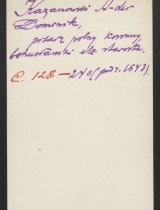 Kazanowski A-der
Dominik,
pisarz polny koronny
bohusławski etc starosta.
C. 128 — 240 (podz. 1648)